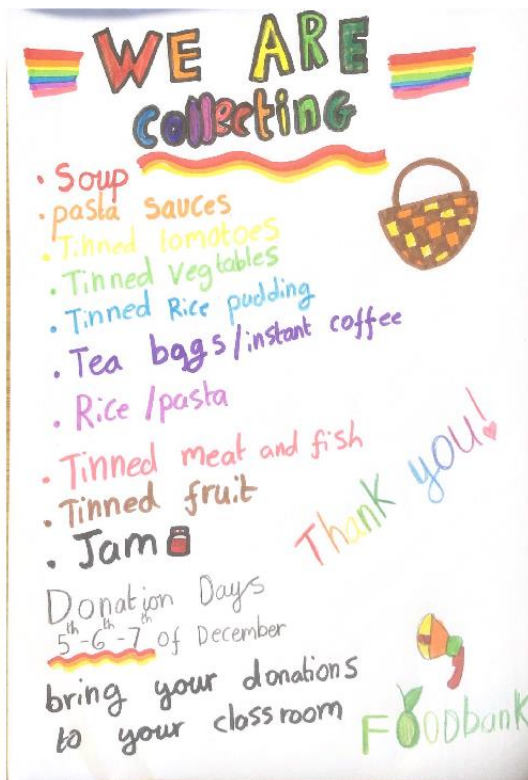 WE ARE
collecting
• Soup
• pasta sauces
• Tinned tomatoes
• Tinned Vegtables
• Tinned Rice pudding
• Tea bags/instant coffee
• Rice /pasta
• Tinned meat and fish
• Tinned fruit
• Jam
Thank you!
Donation Days
5th-6th-7th of December
bring your donations
to your classroom
Foodbank